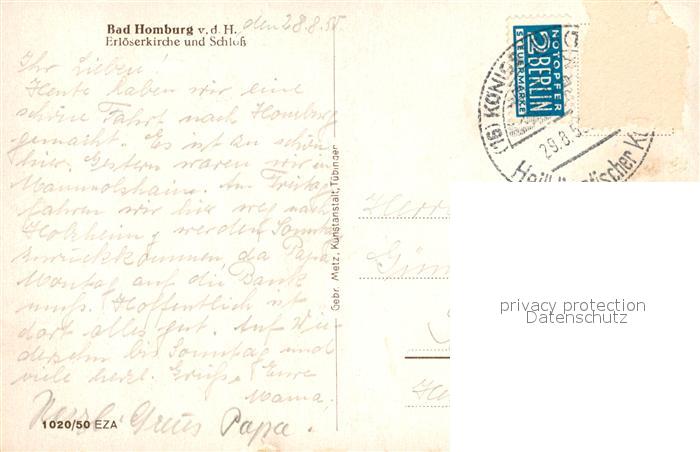 Bad Homburg v. d. H.
Erlöserkirche und Schloß
den 28.8.5
Ihr Lieben!
Heute haben wir eine
schöne Fahrt nach Homburg
gemacht. Es ist zu schön
hier. Gestern waren wir in
Mammolshain. Am Freitag
fahren wir hier weg nach
Holzheim, werden Sonntag
zurückkommen, da Papa
Montag auf die Bank
muß. Hoffentlich ist
dort alles gut. Auf Wie-
dersehn bis Sonntag und
viele herzl. Grüße Eure
Mama.
Herzl. Gruss Papa.
1020/50 EZA
Gebr. Metz, Kunstanstalt, Tübingen
NOTOPFER
2 BERLIN
STEUERMARKE
(16) KÖNIG
29.8.5
Heilklimatischer K
Herr
privacy protection
Datenschutz